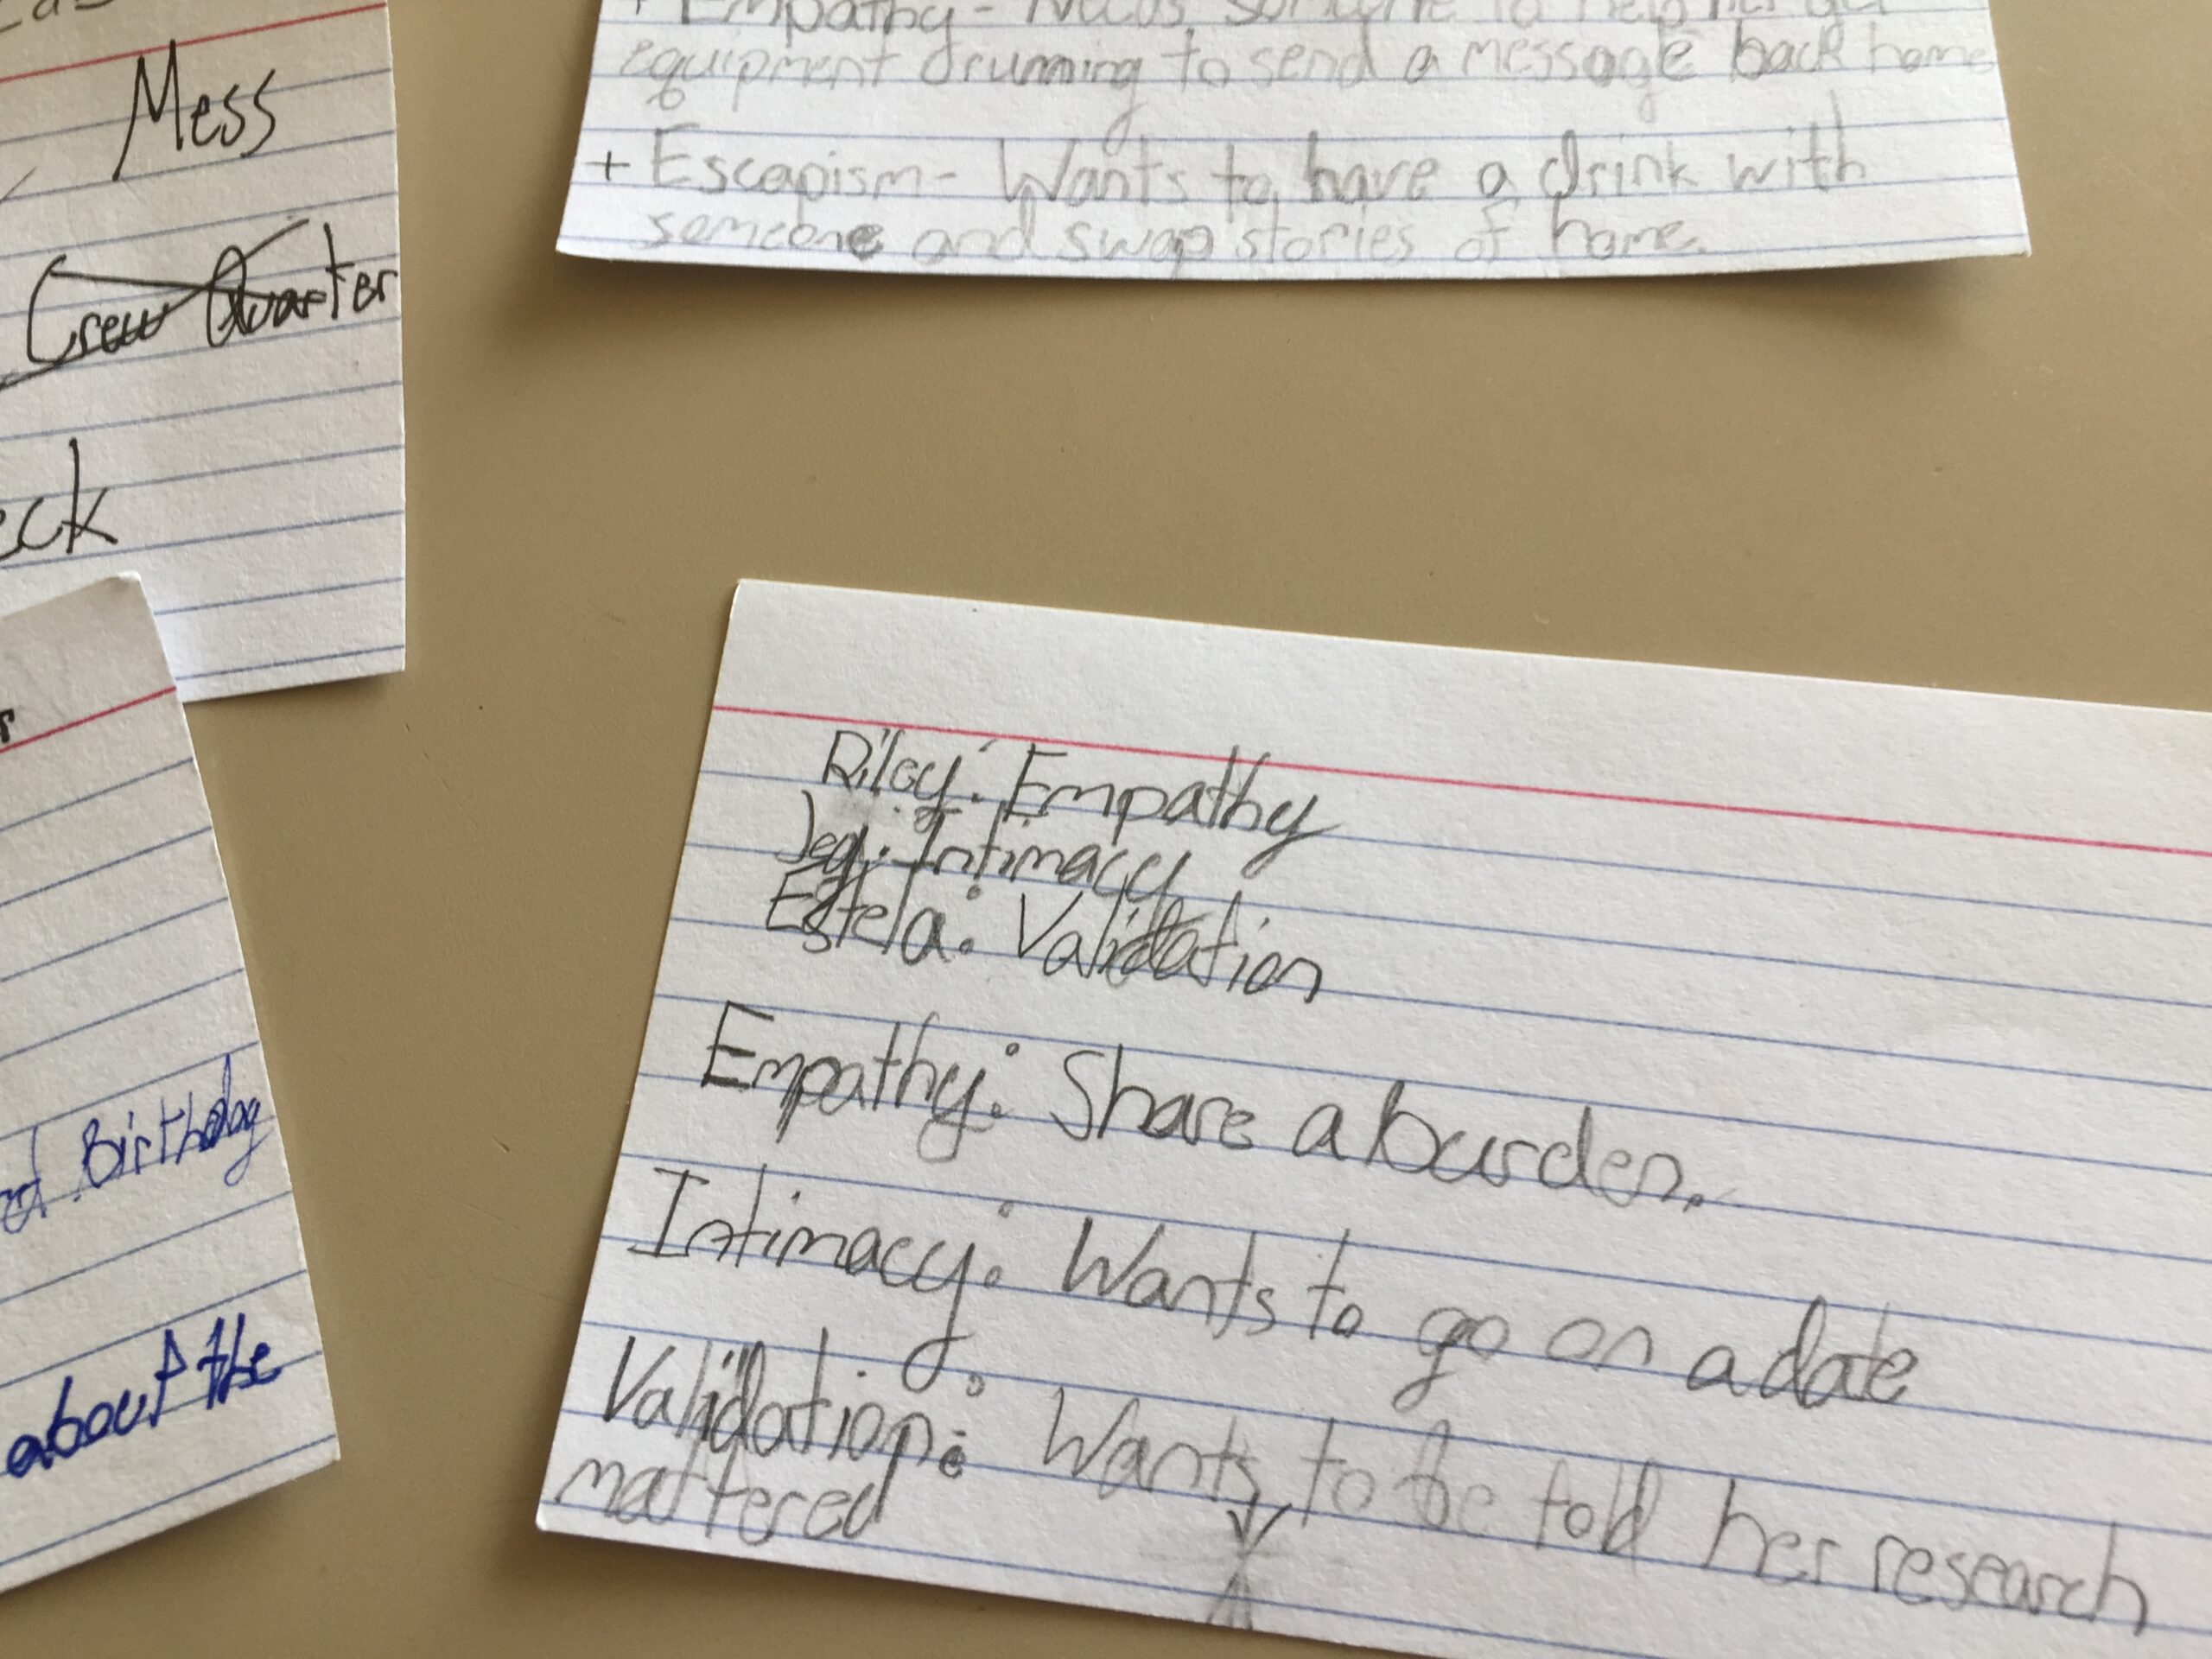 Mess
Crew Quarter
eck
Birthday
about the
+ Empathy - Needs someone to help her get
equipment drunning to send a message back home
+ Escapism - Wants to have a drink with
someone and swap stories of home.
Riley: Empathy
Jeq: Intimacy
Estela: Validation
Empathy: Share a burden.
Intimacy: Wants to go on a date
Validation: Wants to be told her research
mattered